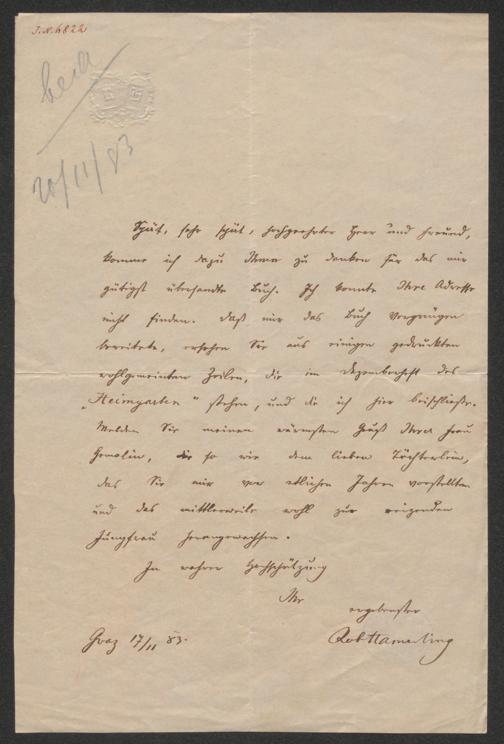 I.N. 4822
20/11/83
Spät, sehr spät, hochgeehrter Herr und Freund,
komme ich dazu Ihnen zu danken für das mir
gütigst übersandte Buch. Ich konnte Ihre Adresse
nicht finden. Daß mir das Buch Vergnügen
bereitete, ersehen Sie aus einigen gedruckten
wohlgemeinten Zeilen, die im Dezemberheft des
„Heimgarten“ stehen, und die ich hier beischließe.
Melden Sie meinen wärmsten Gruß Ihrer Frau
Gemalin, so wie dem lieben Töchterlein,
das Sie mir vor etlichen Jahren vorstellten
und das mittlerweile wohl zur reizenden
Jungfrau herangewachsen.
In wahrer Hochschätzung
Ihr
ergebenster
Rob Hamerling
Graz 17/11 83.